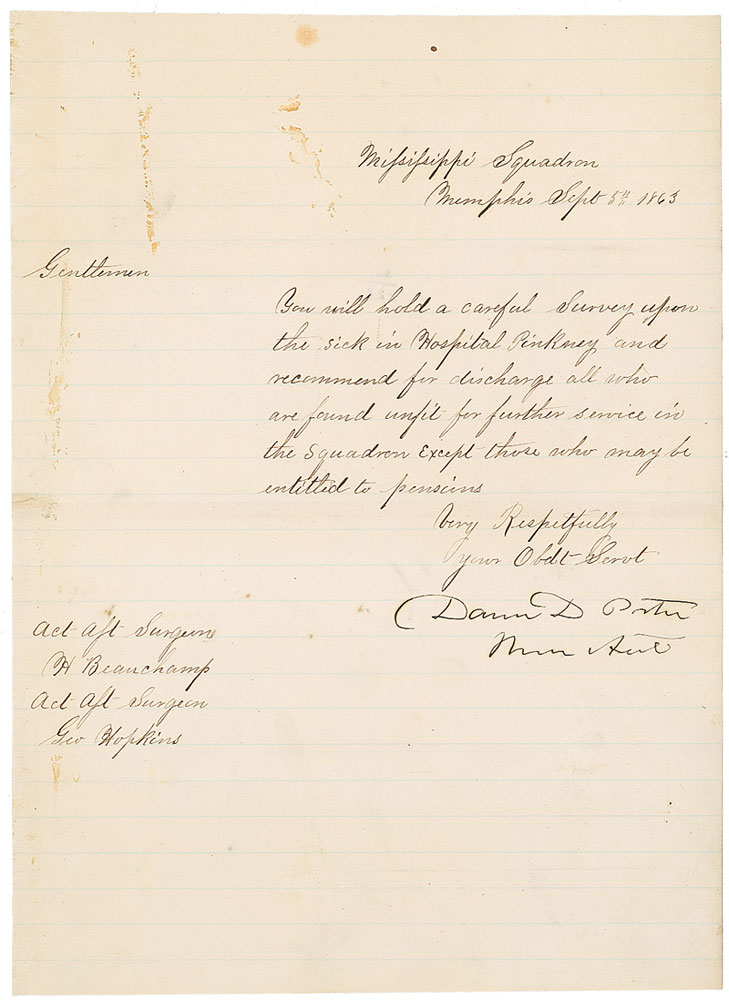 Mississippi Squadron
Memphis Sept 5th 1863
Gentlemen
You will hold a careful Survey upon
the sick in Hospital Pinkney and
recommend for discharge all who
are found unfit for further service in
the Squadron Except those who may be
entitled to pensions
Very Respetfully
your Obdt Servt
David D Porter
Act Ast Surgeon
H Beauchamp
Act Ast Surgeon
Geo Hopkins